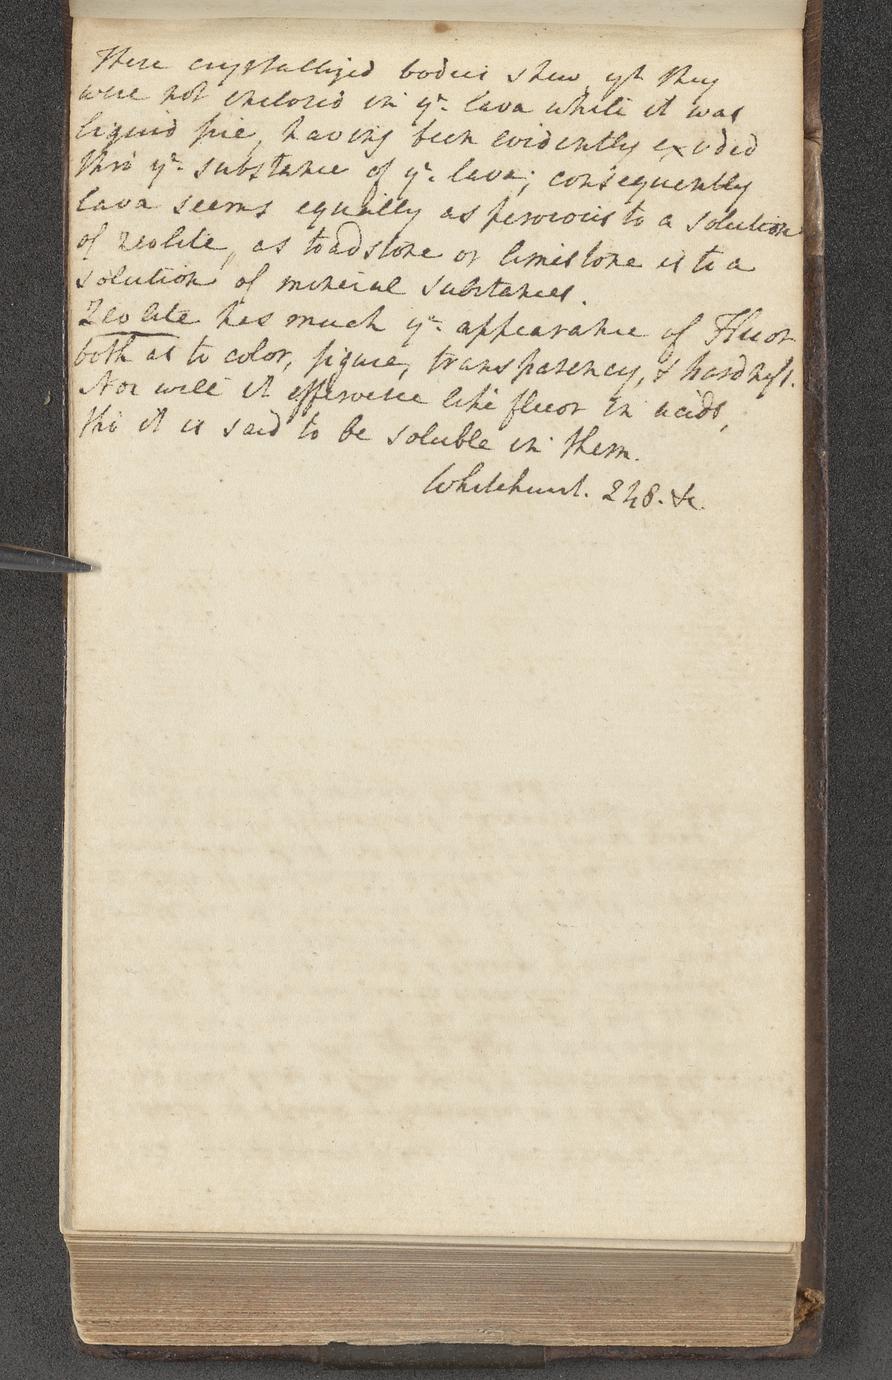 These crystallized bodies shew yt they
were not inclosed in ye. lava while it was
liquid fire, having been evidently exuded
thro' ye. substance of ye. lava; consequently
lava seems equally as pervious to a solution
of zeolite, as toadstone or limestone is to a
solution of mineral substances.
Zeolite has much ye. appearance of Fluor
both as to color, figure, transparency, & hardness.
Nor will it effervesce like fluor in acids,
tho it is said to be soluble in them.
Whitehurst. 248. &c.